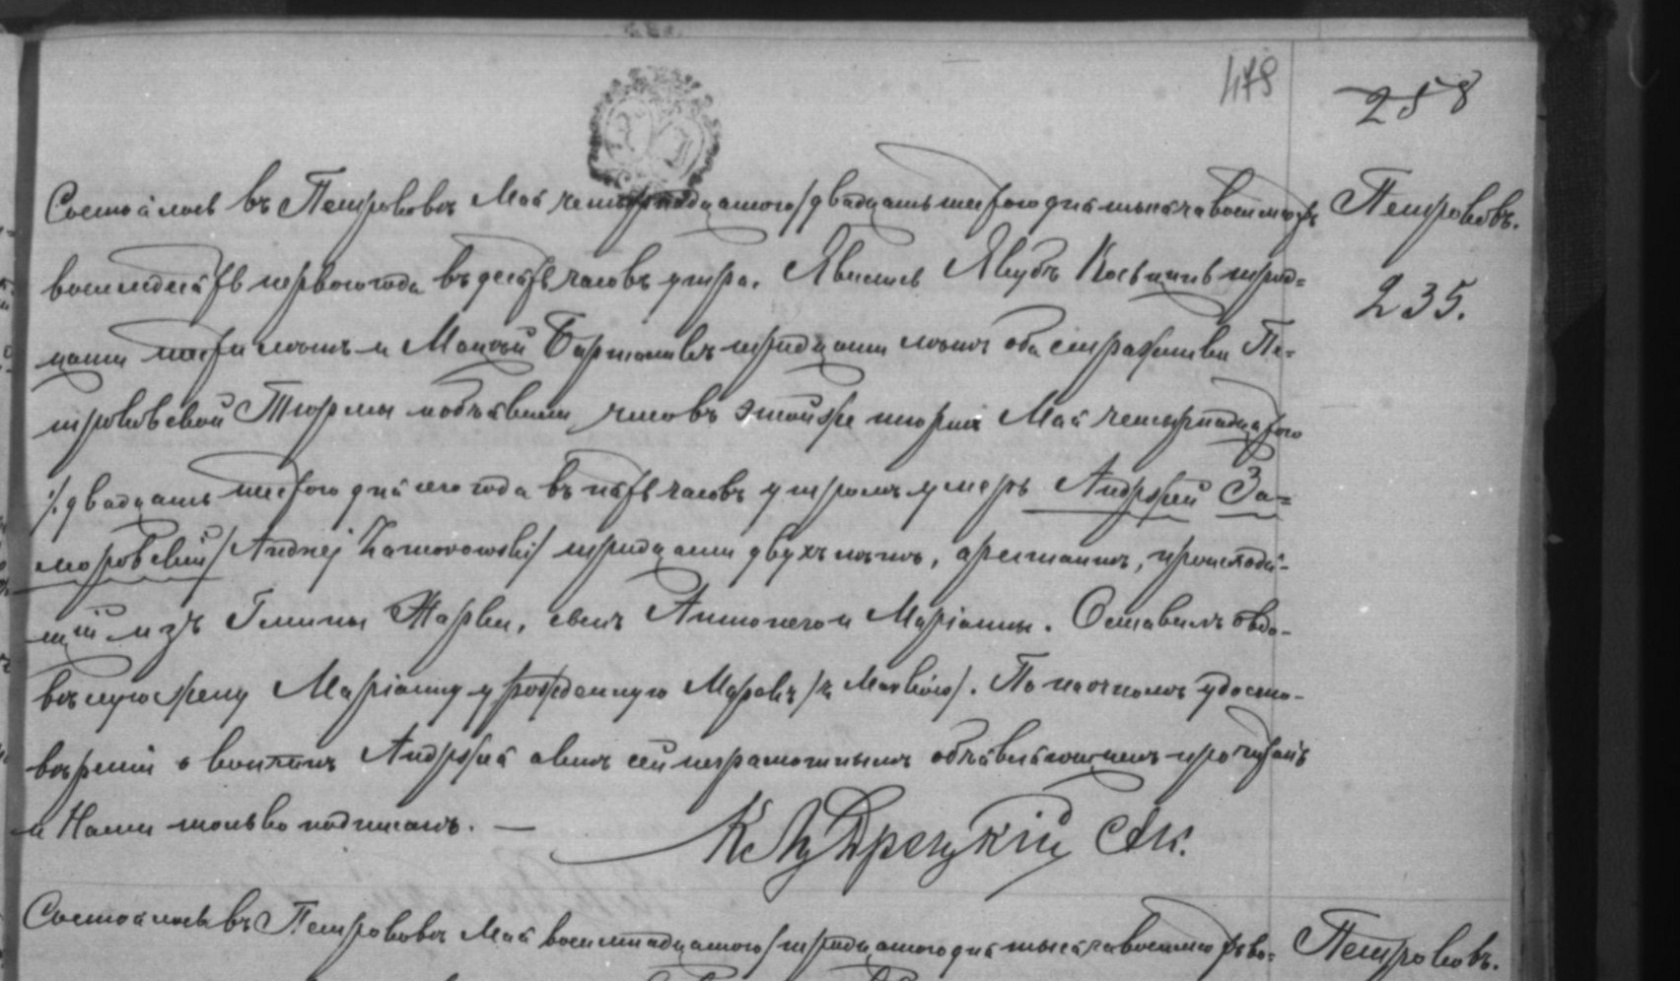 479
258
Состоялось въ Петроковѣ Мая четырнадцатого / двадцать шестого дня тысяча восемьсотъ
Петроковъ.
235.
восемьдесятъ первого года въ десять часовъ утра. Явились Якубъ тридцати
шести лѣтъ и Матѳей тридцати лѣтъ оба стражники Пе=
троковской Тюрмы и объявили что въ этой же тюрмѣ Мая четырнадцатого
/ двадцать шестого дня сего года въ пять часовъ утромъ умеръ Андрей За=
моровскій / Andrzej Zamorowski / тридцати двухъ лѣтъ, арестантъ, происходя=
щій изъ Гмины Жарки, сынъ Антонего и Маріанны. Оставилъ овдо=
вѣлую жену Маріанну урожденную. По наочномъ удосто=
вѣреніи о кончинѣ Андрея актъ сей неграмотнымъ объявляющимъ прочитанъ
и Нами только подписанъ. —
Состоялось въ Петроковѣ Мая восемнадцатого / тридцатого дня тысяча восемьсотъ во=
Петроковъ.